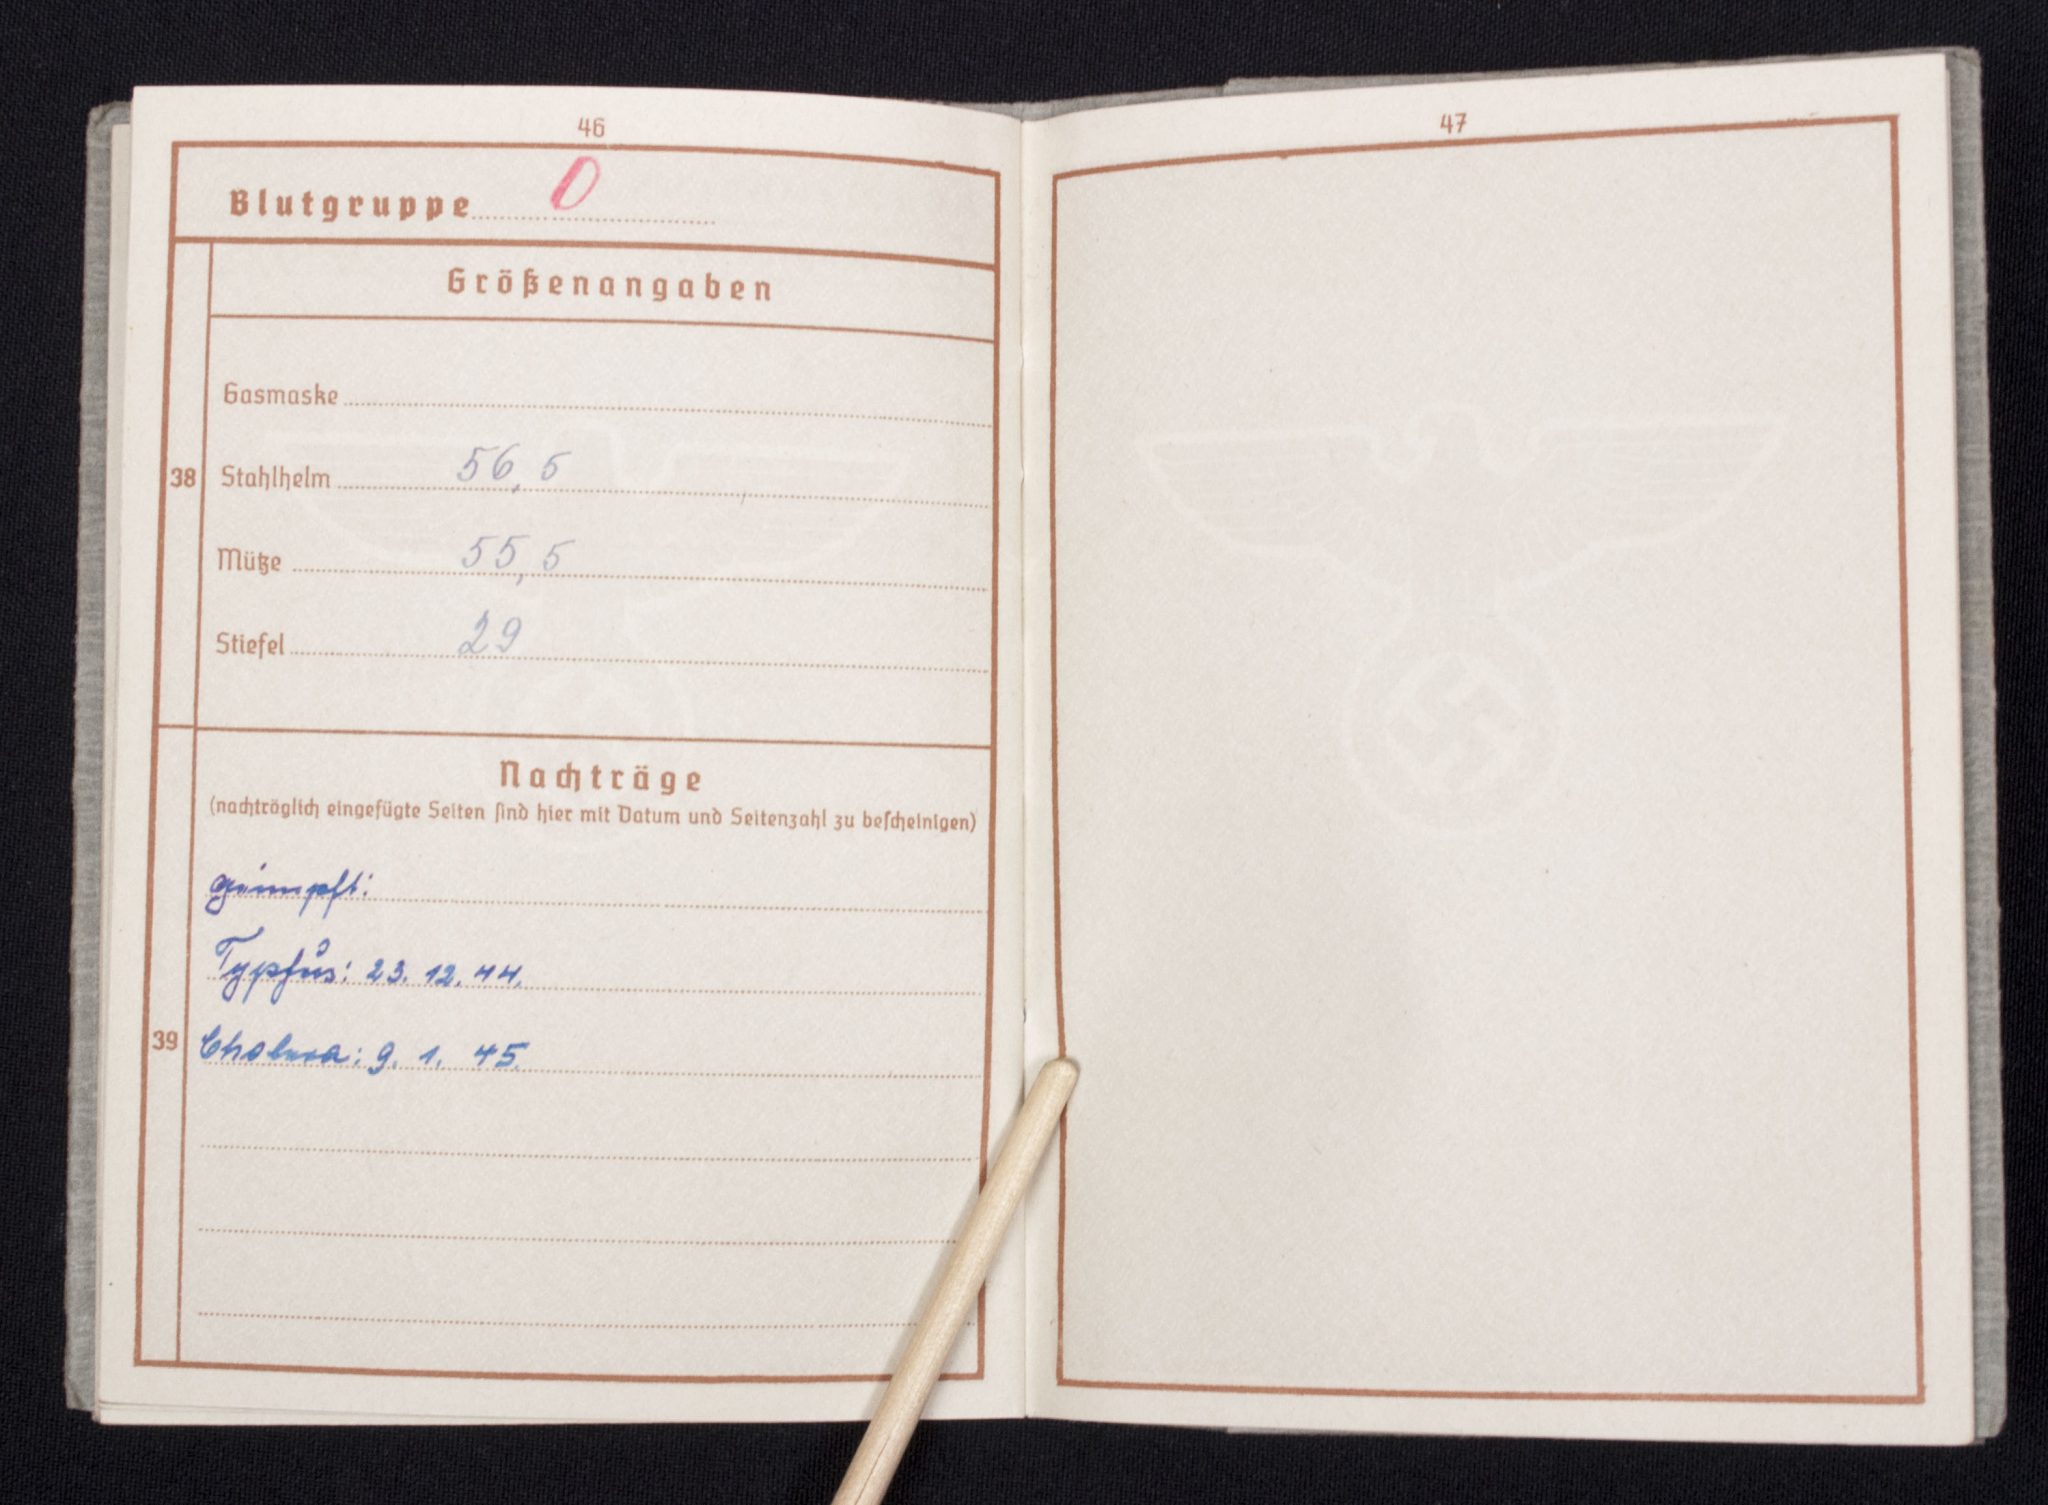 46
Blutgruppe O
Größenangaben
Gasmaske
38
Stahlhelm 56,5
Mütze 55,5
Stiefel 29
Nachträge
(nachträglich eingefügte Seiten sind hier mit Datum und Seitenzahl zu bescheinigen)
geimpft:
Typhus: 23. 12. 44.
39
Cholera: 9. 1. 45.
47